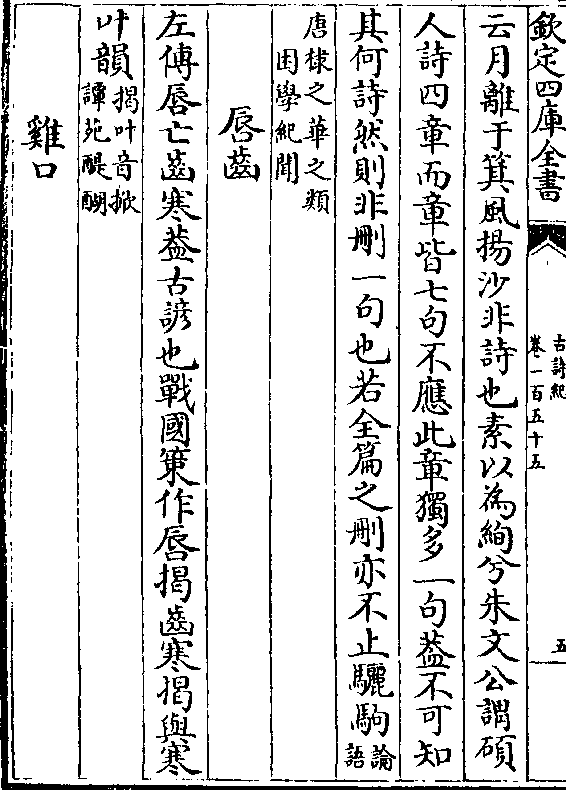 欽定四庫全書
古詩紀
卷一百五十五
五
云月離于箕風揚沙非詩也素以為絢兮朱文公謂碩
人詩四章而章皆七句不應此章獨多一句葢不可知
其何詩然則非刪一句也若全篇之刪亦不止驪駒論語
唐棣之華之類
困學紀聞
脣齒
左傳脣亡齒寒葢古諺也戰國策作脣揭齒寒揭與寒
叶韻揭叶音掀
譚苑醍醐
雞口